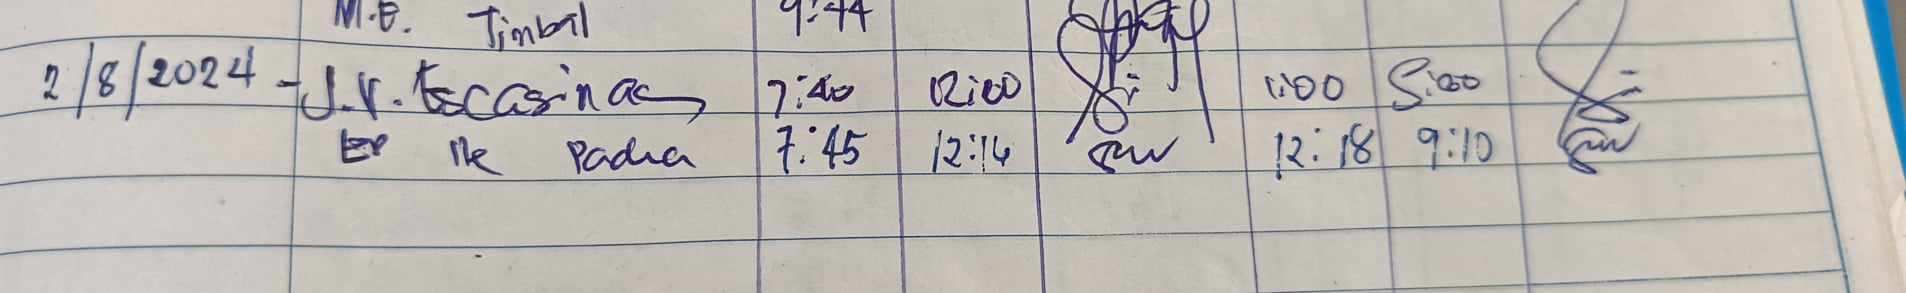 M.E. Timbal 9:44
2/8/2024 - J.V. Escasinas 7:40 12:00 1:00 5:00
7:45 12:14 12:18 9:10